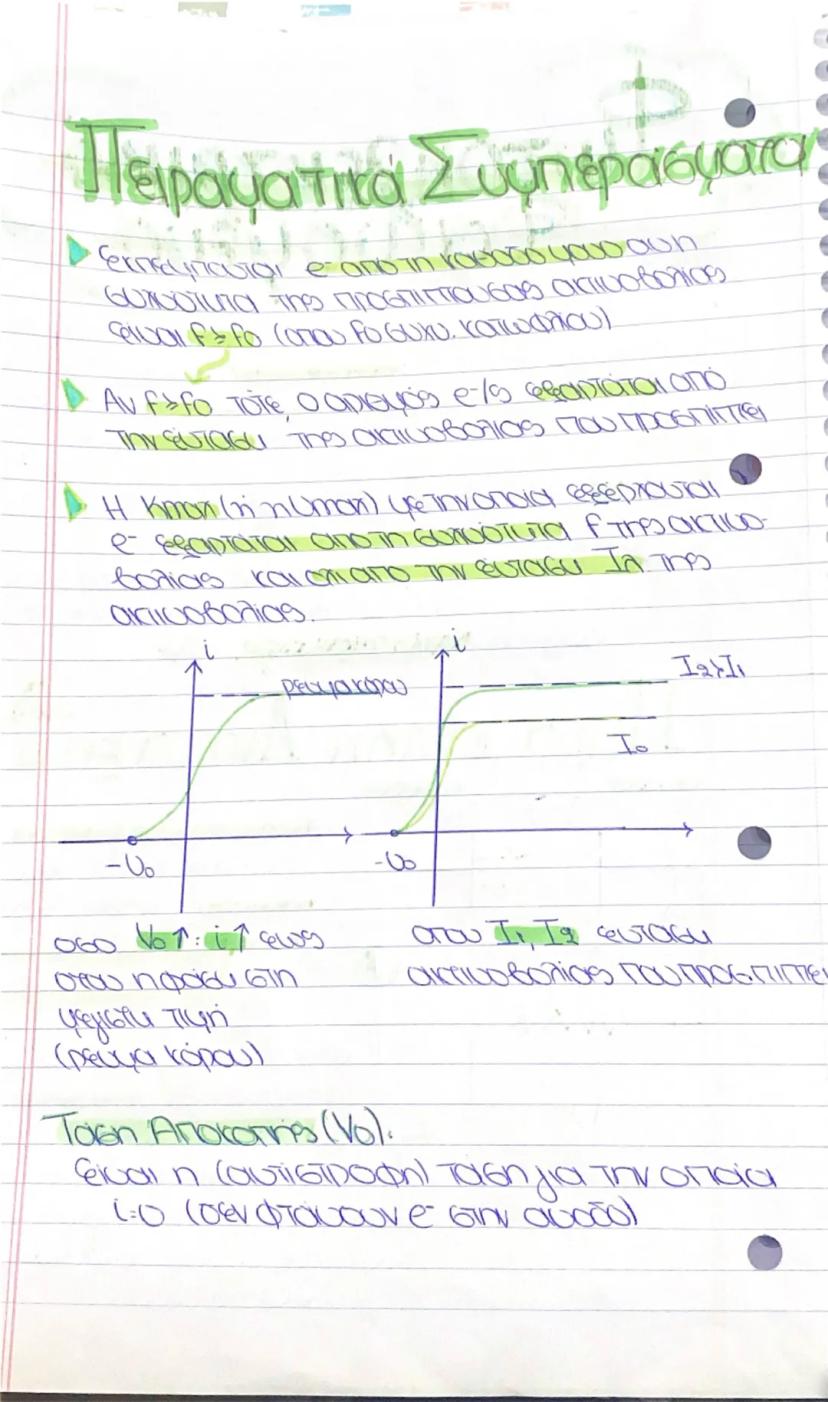 Πειραματικά Συμπεράσματα
Εκπέμπονται e- από τη κάθοδο μόνο αν η
συχνότητα της προσπίπτουσας ακτινοβολίας
είναι f≥f0 (όπου f0 συχν. κατωφλίου)
Αν f≥f0 τότε, ο αριθμός e-/s εξαρτάται από
την ένταση της ακτινοβολίας που προσπίπτει
Η Kmax (ή η Umax) με την οποία εξέρχονται
e- εξαρτάται από τη συχνότητα f της ακτινο-
βολίας και όχι από την ένταση Iλ της
ακτινοβολίας.
i
ρεύμα κόρου
-V0
i
I2>I1
I0
-V0
όσο V0↑: i↑ έως
όταν η φάση στη
μέγιστη τιμή
(ρεύμα κόρου)
όπου I1, I2 ένταση
ακτινοβολίας που προσπίπτει
Τάση Αποκοπής (V0):
Είναι η (αντίστροφη) τάση για την οποία
i=0 (δεν φτάνουν e- στην άνοδο)